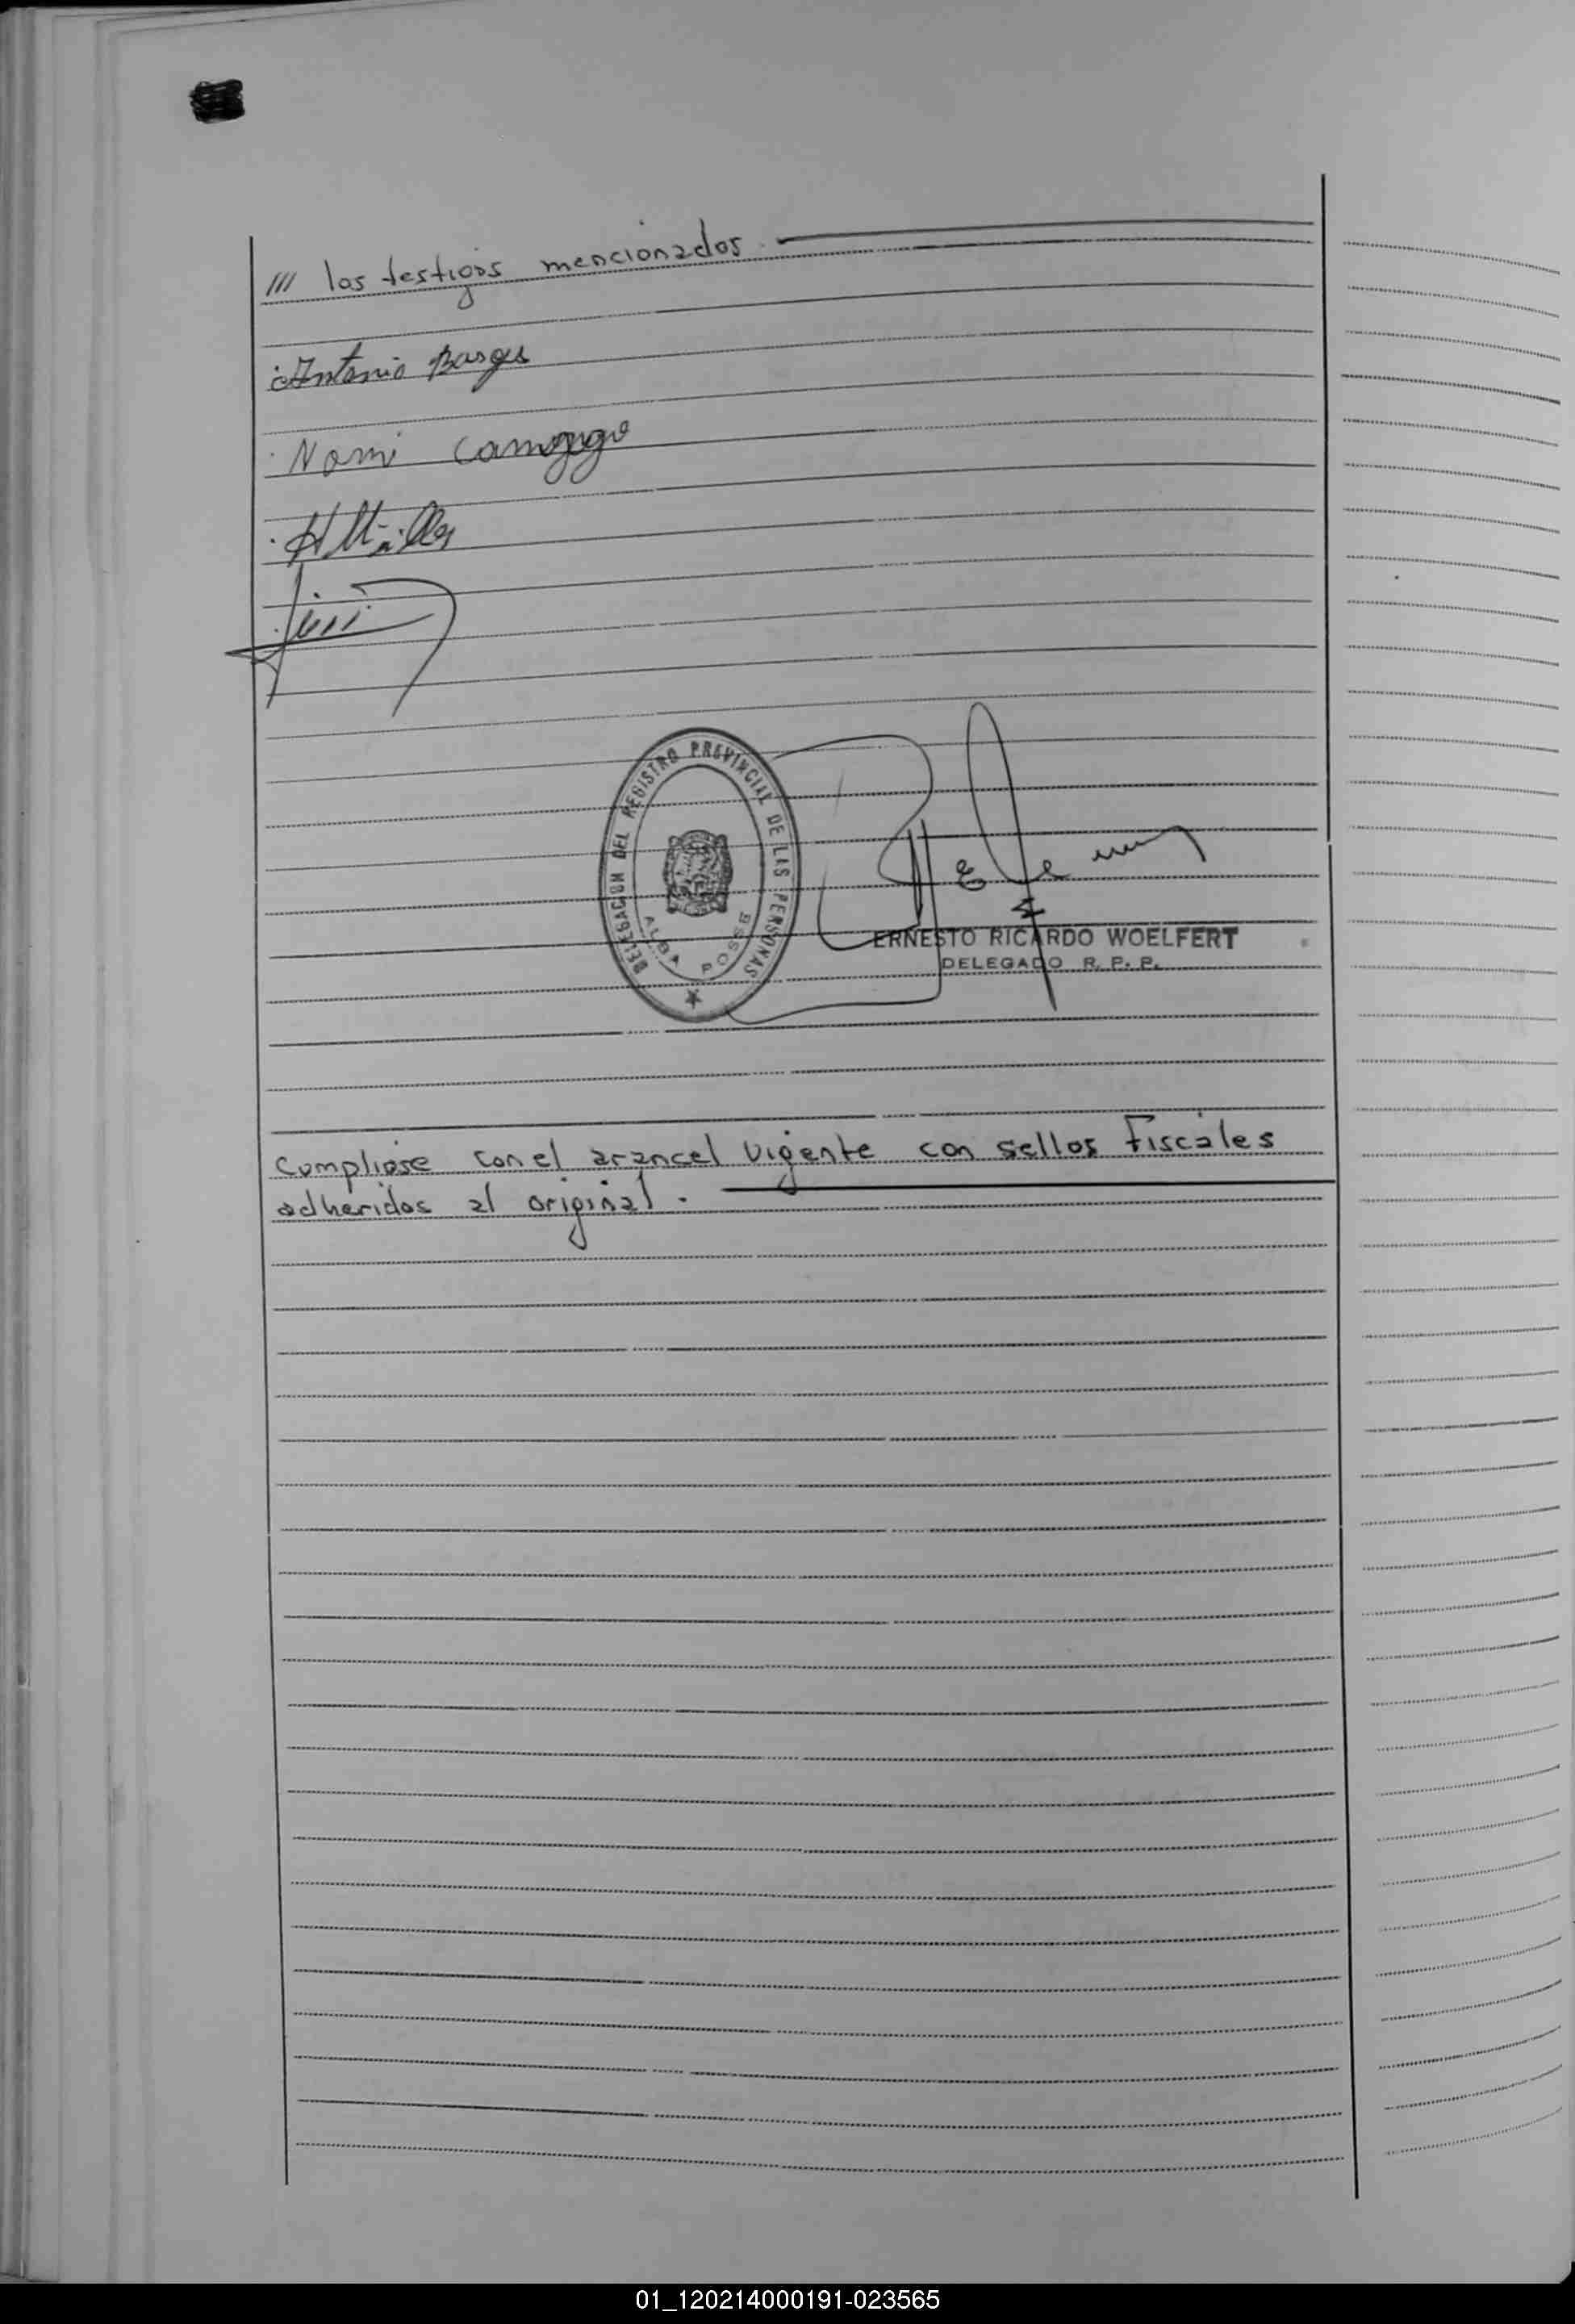 /// los testigos mencionados.
Antonio Borges
Nomi
DELEGACION DEL REGISTRO PROVINCIAL DE LAS PERSONAS
ALBA POSSE
ERNESTO RICARDO WOELFERT
DELEGADO R. P. P.
Cumpliose con el arancel vigente con sellos fiscales
adheridos al original.
01_120214000191-023565